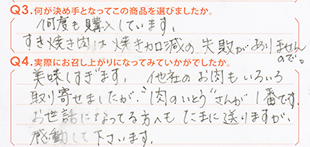 Q3.何が決め手となってこの商品を選びましたか。
何度も購入しています。
すき焼き肉は焼き加減の失敗がありません
ので。
Q4.実際にお召し上がりになってみていかがでしたか。
美味しすぎます。他社のお肉もいろいろ
取り寄せましたが、"肉のいとう"さんが1番です。
お世話になってる方へもたまに送りますが、
感動して下さいます。